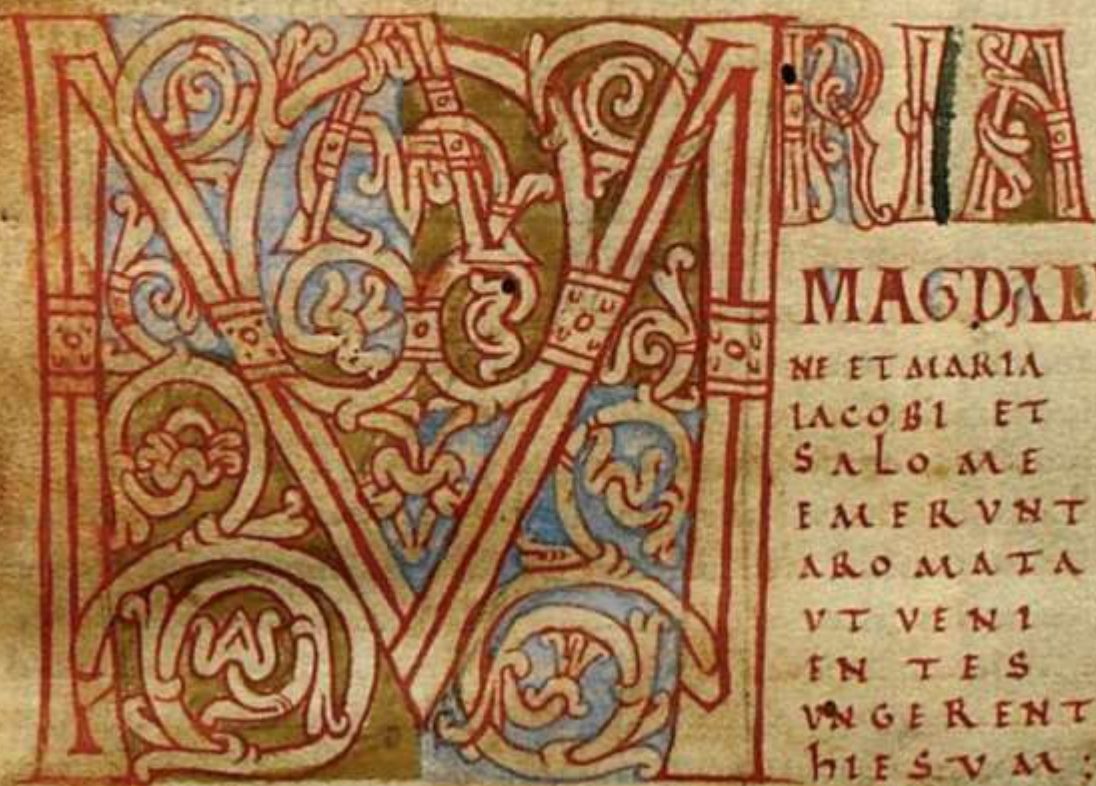 MARIA
MAGDAL
NE ET MARIA
IACOBI ET
SALOME
EMERVNT
AROMATA
VT VENI
ENTES
VNGERENT
hIESVM: